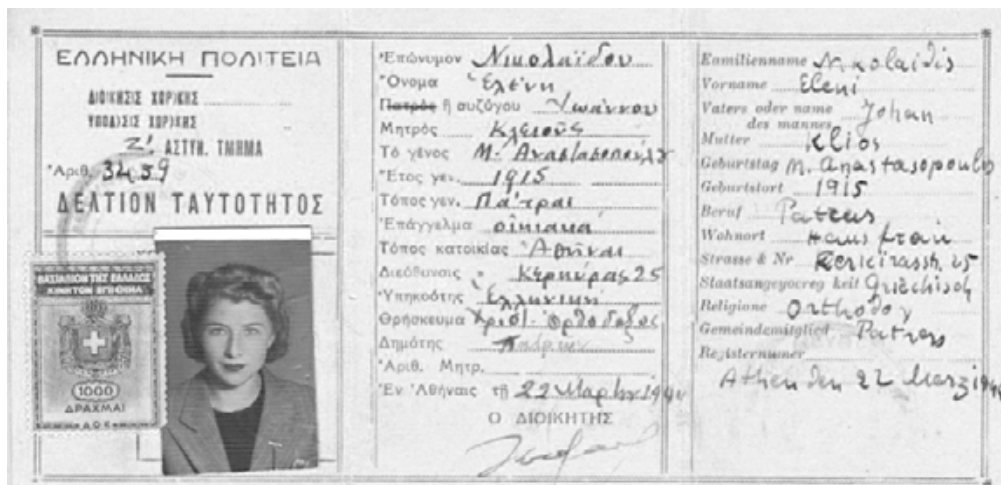 ΕΛΛΗΝΙΚΗ ΠΟΛΙΤΕΙΑ
ΔΙΟΙΚΗΣΙΣ ΧΩΡ/ΚΗΣ
ΥΠΟΔ)ΣΙΣ ΧΩΡ)ΚΗΣ
Ζ! ΑΣΤΥΝ. ΤΜΗΜΑ
Ἀριθ. 3459
ΔΕΛΤΙΟΝ ΤΑΥΤΟΤΗΤΟΣ
ΒΑΣΙΛΕΙΟΝ ΤΗΣ ΕΛΛΑΔΟΣ
ΚΙΝΗΤΟΝ ΕΠΙΣΗΜΑ
1000
ΔΡΑΧΜΑΙ
Ἐπώνυμον Νικολαΐδου
Ὄνομα Ἑλένη
Πατρός ἢ συζύγου Ἰωάννου
Μητρός Κλειοῦς
Τό γένος Μ. Ἀναστασοπούλου
Ἔτος γεν. 1915
Τόπος γεν. Πάτραι
Ἐπάγγελμα οἰκιακά
Τόπος κατοικίας Ἀθῆναι
Διεύθυνσις Κερκύρας 25
Ὑπηκοότης Ἑλληνική
Θρήσκευμα Χρισ. Ὀρθόδοξος
Δημότης Πατρῶν
Ἀριθ. Μητρ.
Ἐν Ἀθήναις τῇ 22 Μαρτίου 194
Ο ΔΙΟΙΚΗΤΗΣ
Familienname Nikolaidis
Vorname Eleni
Vaters oder name Johan
des mannes
Mutter Klios
Geburtstag M. Anastasopoulo
Geburtsort 1915
Beruf Patras
Wohnort Hausfrau
Strasse & Nr 25
Staatsangeyoereg keit Griechisch
Religione Orthodox
Gemeindemitglied Patras
Registernumer
Athen den 22 Marz 194